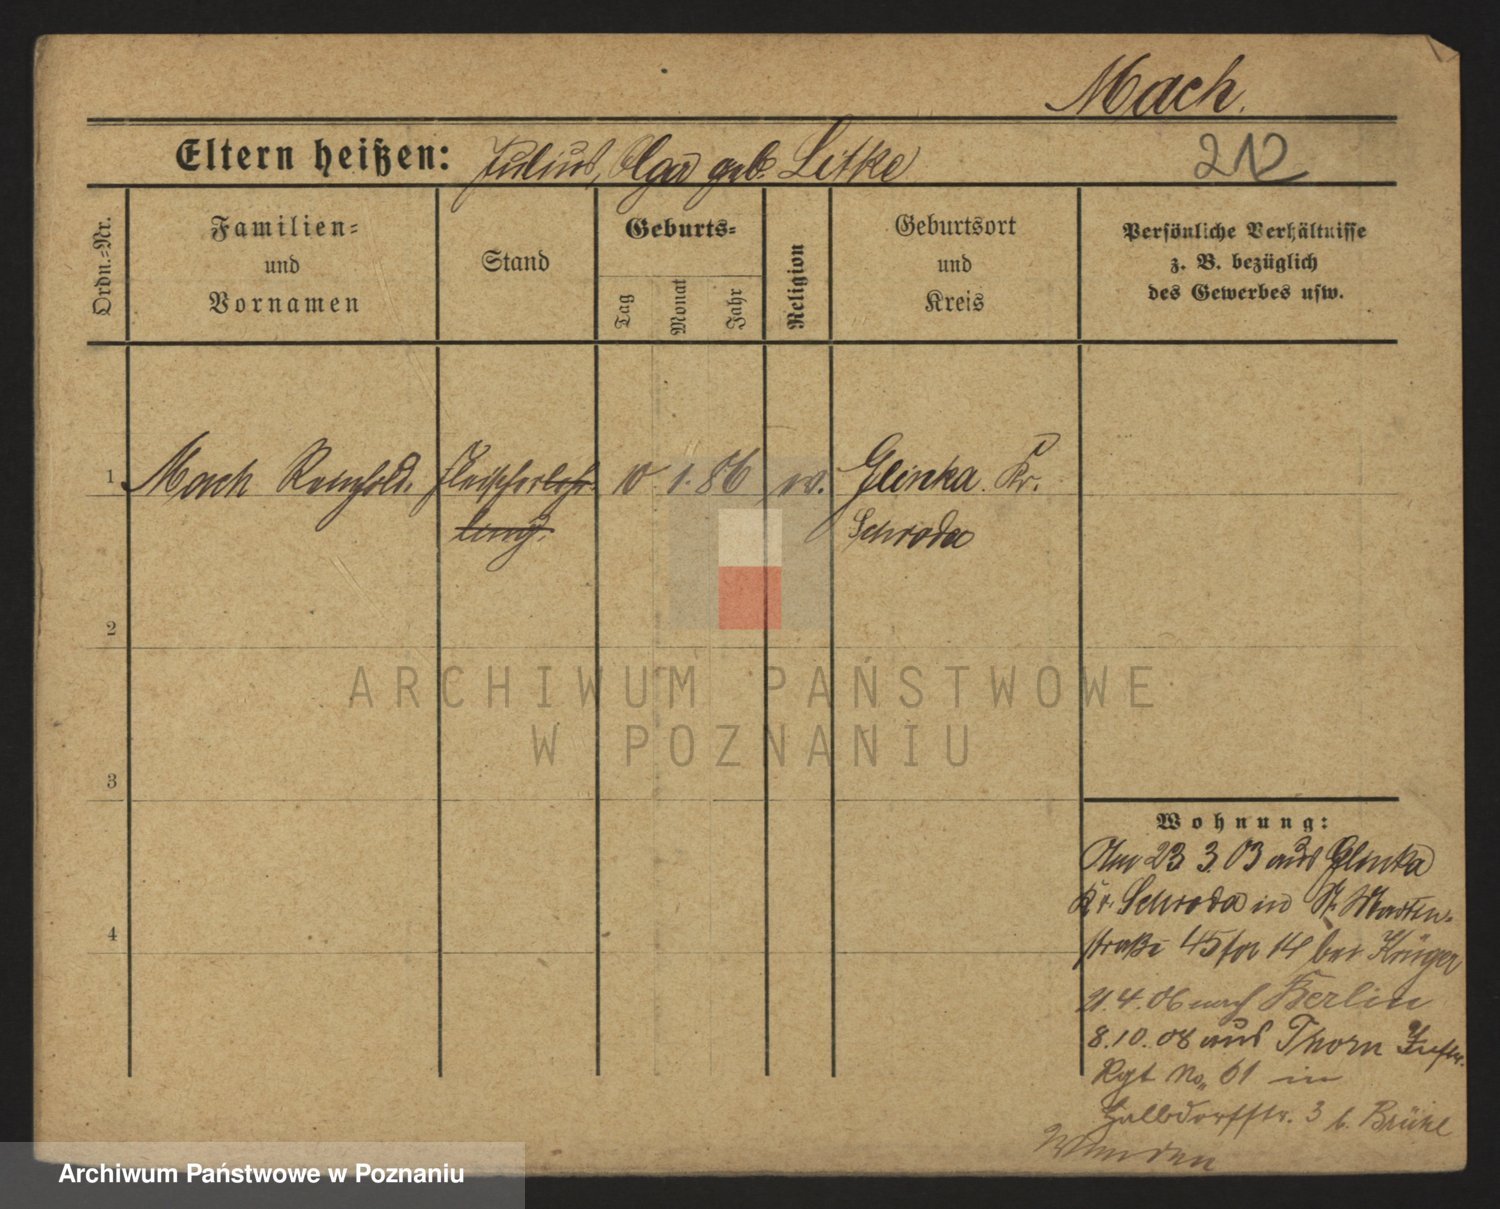 Mach.
Eltern heißen: Julius, Olga geb. Litke
212
Ordn.-Nr.
Familien-
und
Vornamen
Stand
Geburts-
Tag
Monat
Jahr
Religion
Geburtsort
und
Kreis
Persönliche Verhältnisse
z. B. bezüglich
des Gewerbes usw.
1 Mach Reinhold. Fleischerlehr-
10 1. 86 ev. Glinka. Kr.
ling.
Schroda
2
3
4
ARCHIWUM PAŃSTWOWE
W POZNANIU
Wohnung:
Am 23 3. 03 aus Glinka
Kr. Schroda in St. Martin-
straße 45 bei Krüger
21. 4. 06 nach Berlin
8. 10. 08 aus Thorn Inftr.
Rgt No. 61 in
Halbdorfstr. 3 b.
Archiwum Państwowe w Poznaniu